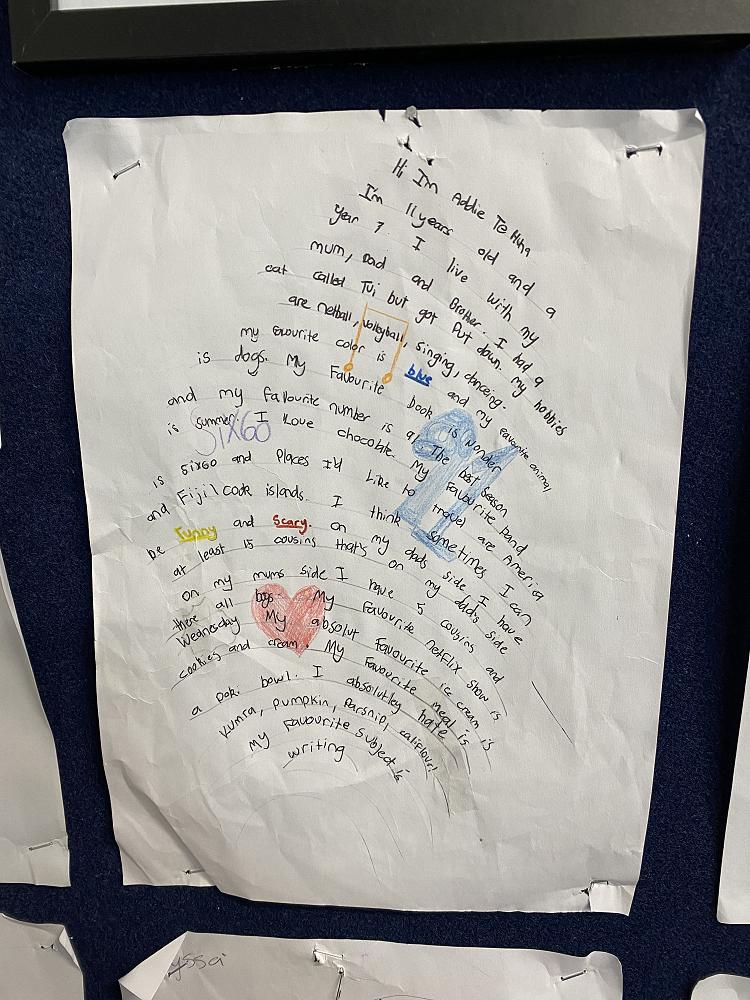 Hi I'm Addie Te Hina
I'm 11 years old and a
year 7. I live with my
mum, Dad and Brother. I had a
cat called Tui but got Put down. my hobbies
are netball, volleyball, singing, dancing.
my favourite color is blue and my favorite animal
is dogs. My Favourite book is wonder
and my favourite number is 9! The best Season
is summer! I love chocolate. My Favourite band
SIX60
is six60 and Places I'd Like to travel are America
and Fiji\cook islands. I think sometimes I can
be Funny and Scary. on my dads side I have
at least 15 cousins that's on my dad's side
on my mums side I have 5 cousins and
there all boys. My Favourite netflix show is
Wednesday My absolut Favourite ice cream is
cookies and cream. My Favourite meal is
a poki bowl. I absolutley hate
kumra, pumpkin, Parsnip, califlour!
My Favourite Subject is
writing
yssa